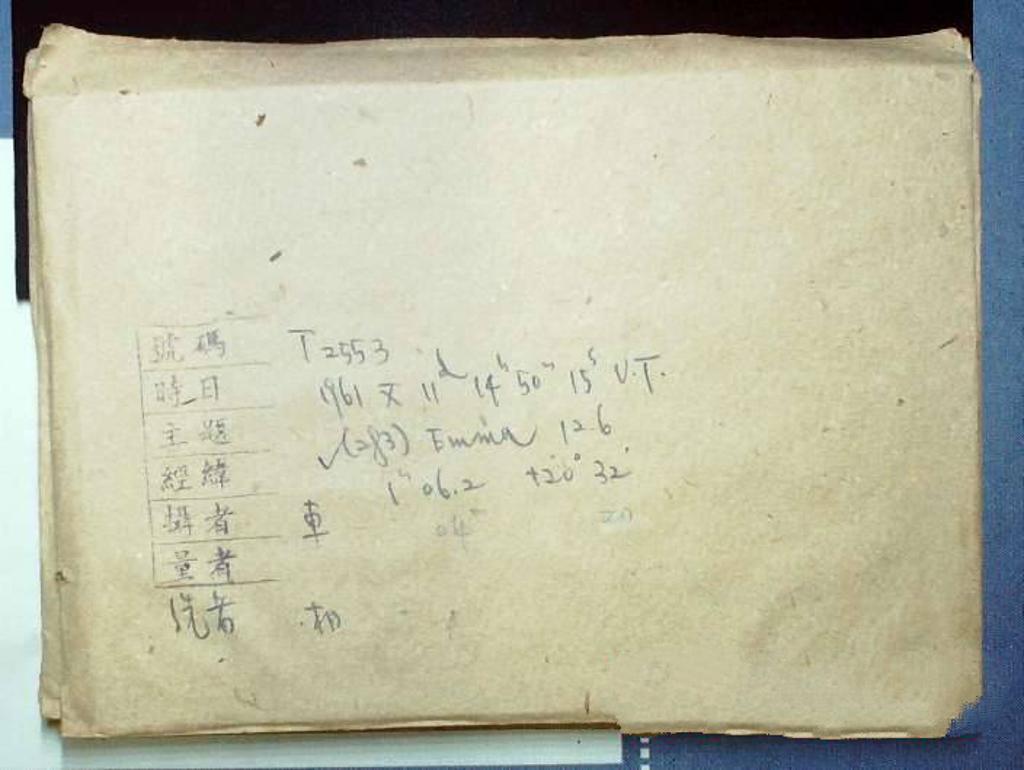 號碼 T2553
時日 1961 X 11ᵈ 14ʰ 50ᵐ 15ˢ U.T.
主題 √(283) Emma 12.6
經緯 1ʰ 06.2 +20° 32'
攝者 車
04ᵐ 20
量者
洗者